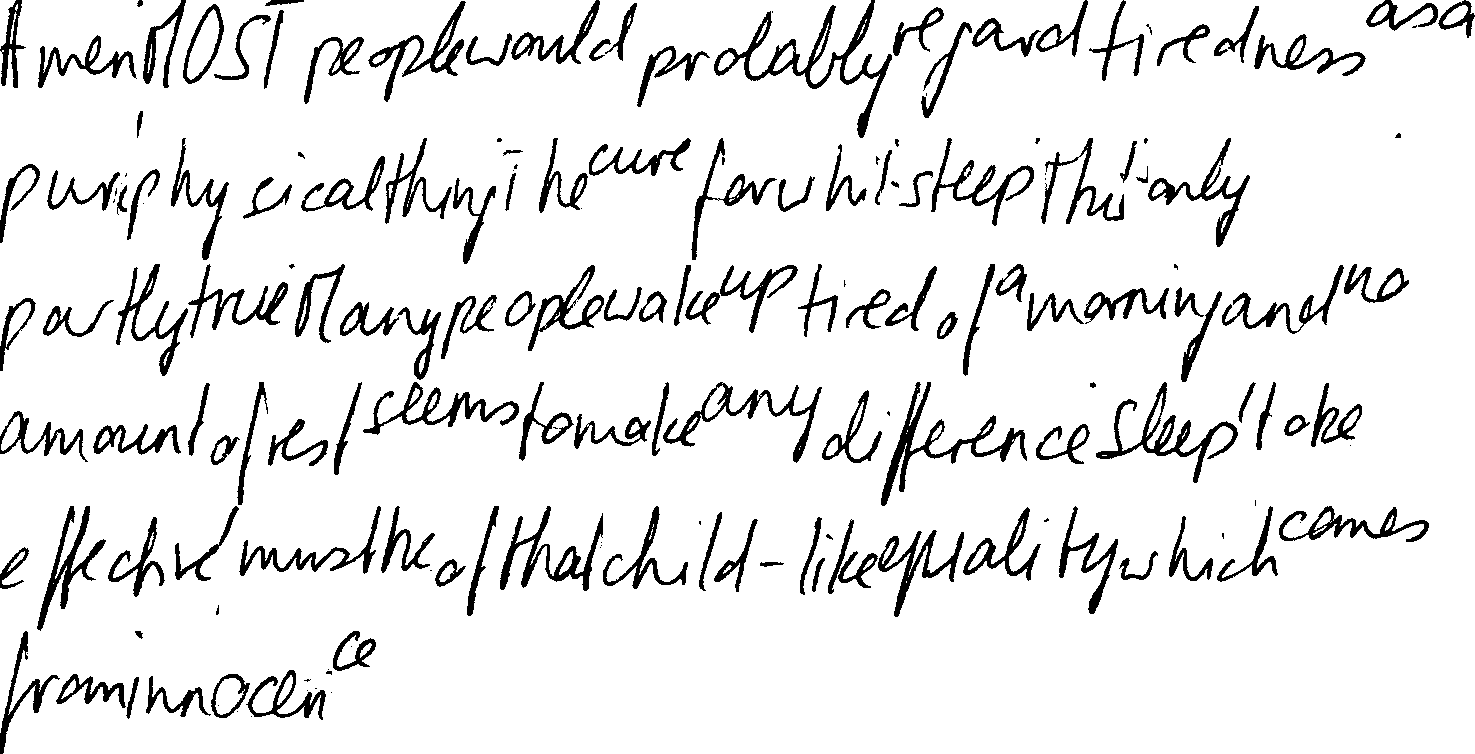 Amen MOST people would probably regard tiredness as a
purely physical thing The cure for which is sleep This is only
partly true Many people wake up tired of a morning and no
amount of rest seems to make any difference Sleep to be
effective must be of that child-like quality which comes
from innocence